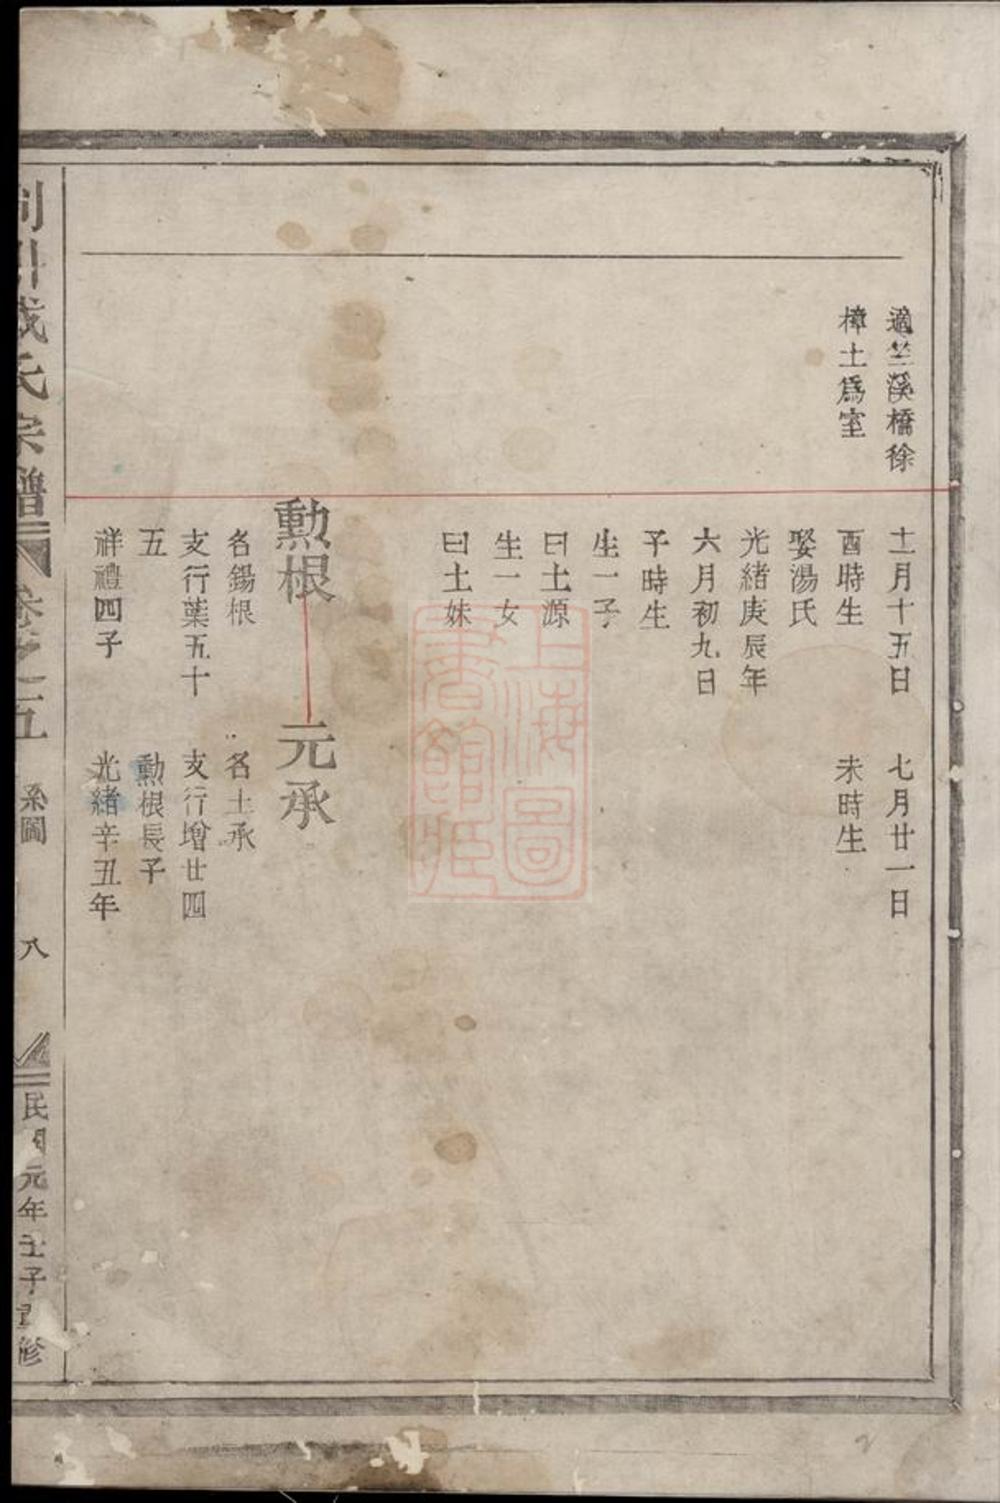 適竺溪橋徐
樟土爲室
十一月十五日
酉時生
娶湯氏
光緒庚辰年
六月初九日
子時生
生一子
曰土源
生一女
曰土妹
七月廿一日
未時生
勲根
名錫根
支行葉五十
五
祥禮四子
元承
名土承
支行增廿四
勲根長子
光緒辛丑年
氏宗譜
卷之二五
系圖
八
民國元年壬子重修
上海圖書館藏